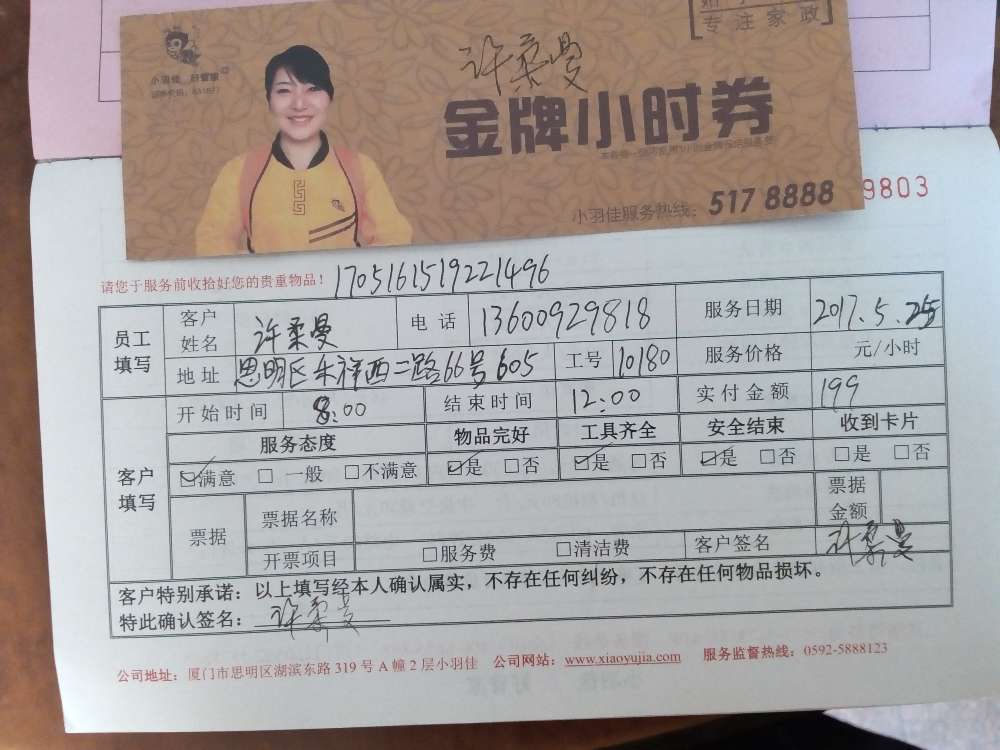 专注家政
小羽佳 好管家
许柔曼
金牌小时券
小羽佳服务热线: 517 8888
9803
请您于服务前收拾好您的贵重物品! 1705161519221496
员工填写 客户姓名 许柔曼 电话 13600929818 服务日期 2017.5.25
地址 思明区禾祥西二路66号605 工号 10180 服务价格 元/小时
客户填写 开始时间 8:00 结束时间 12:00 实付金额 199
服务态度 物品完好 工具齐全 安全结束 收到卡片
☑满意 □一般 □不满意 ☑是 □否 ☑是 □否 ☑是 □否 □是 □否
票据 票据名称 票据金额
开票项目 □服务费 □清洁费 客户签名 许柔曼
客户特别承诺: 以上填写经本人确认属实,不存在任何纠纷,不存在任何物品损坏。
特此确认签名: 许柔曼
公司地址: 厦门市思明区湖滨东路 319 号 A 幢 2 层小羽佳 公司网站: www.xiaoyujia.com 服务监督热线: 0592-5888123